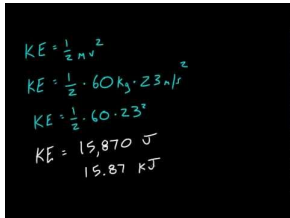 KE = 1/2 mv²
KE = 1/2 · 60 kg · 23 m/s ²
KE = 1/2 · 60 · 23²
KE = 15,870 J
15.87 kJ